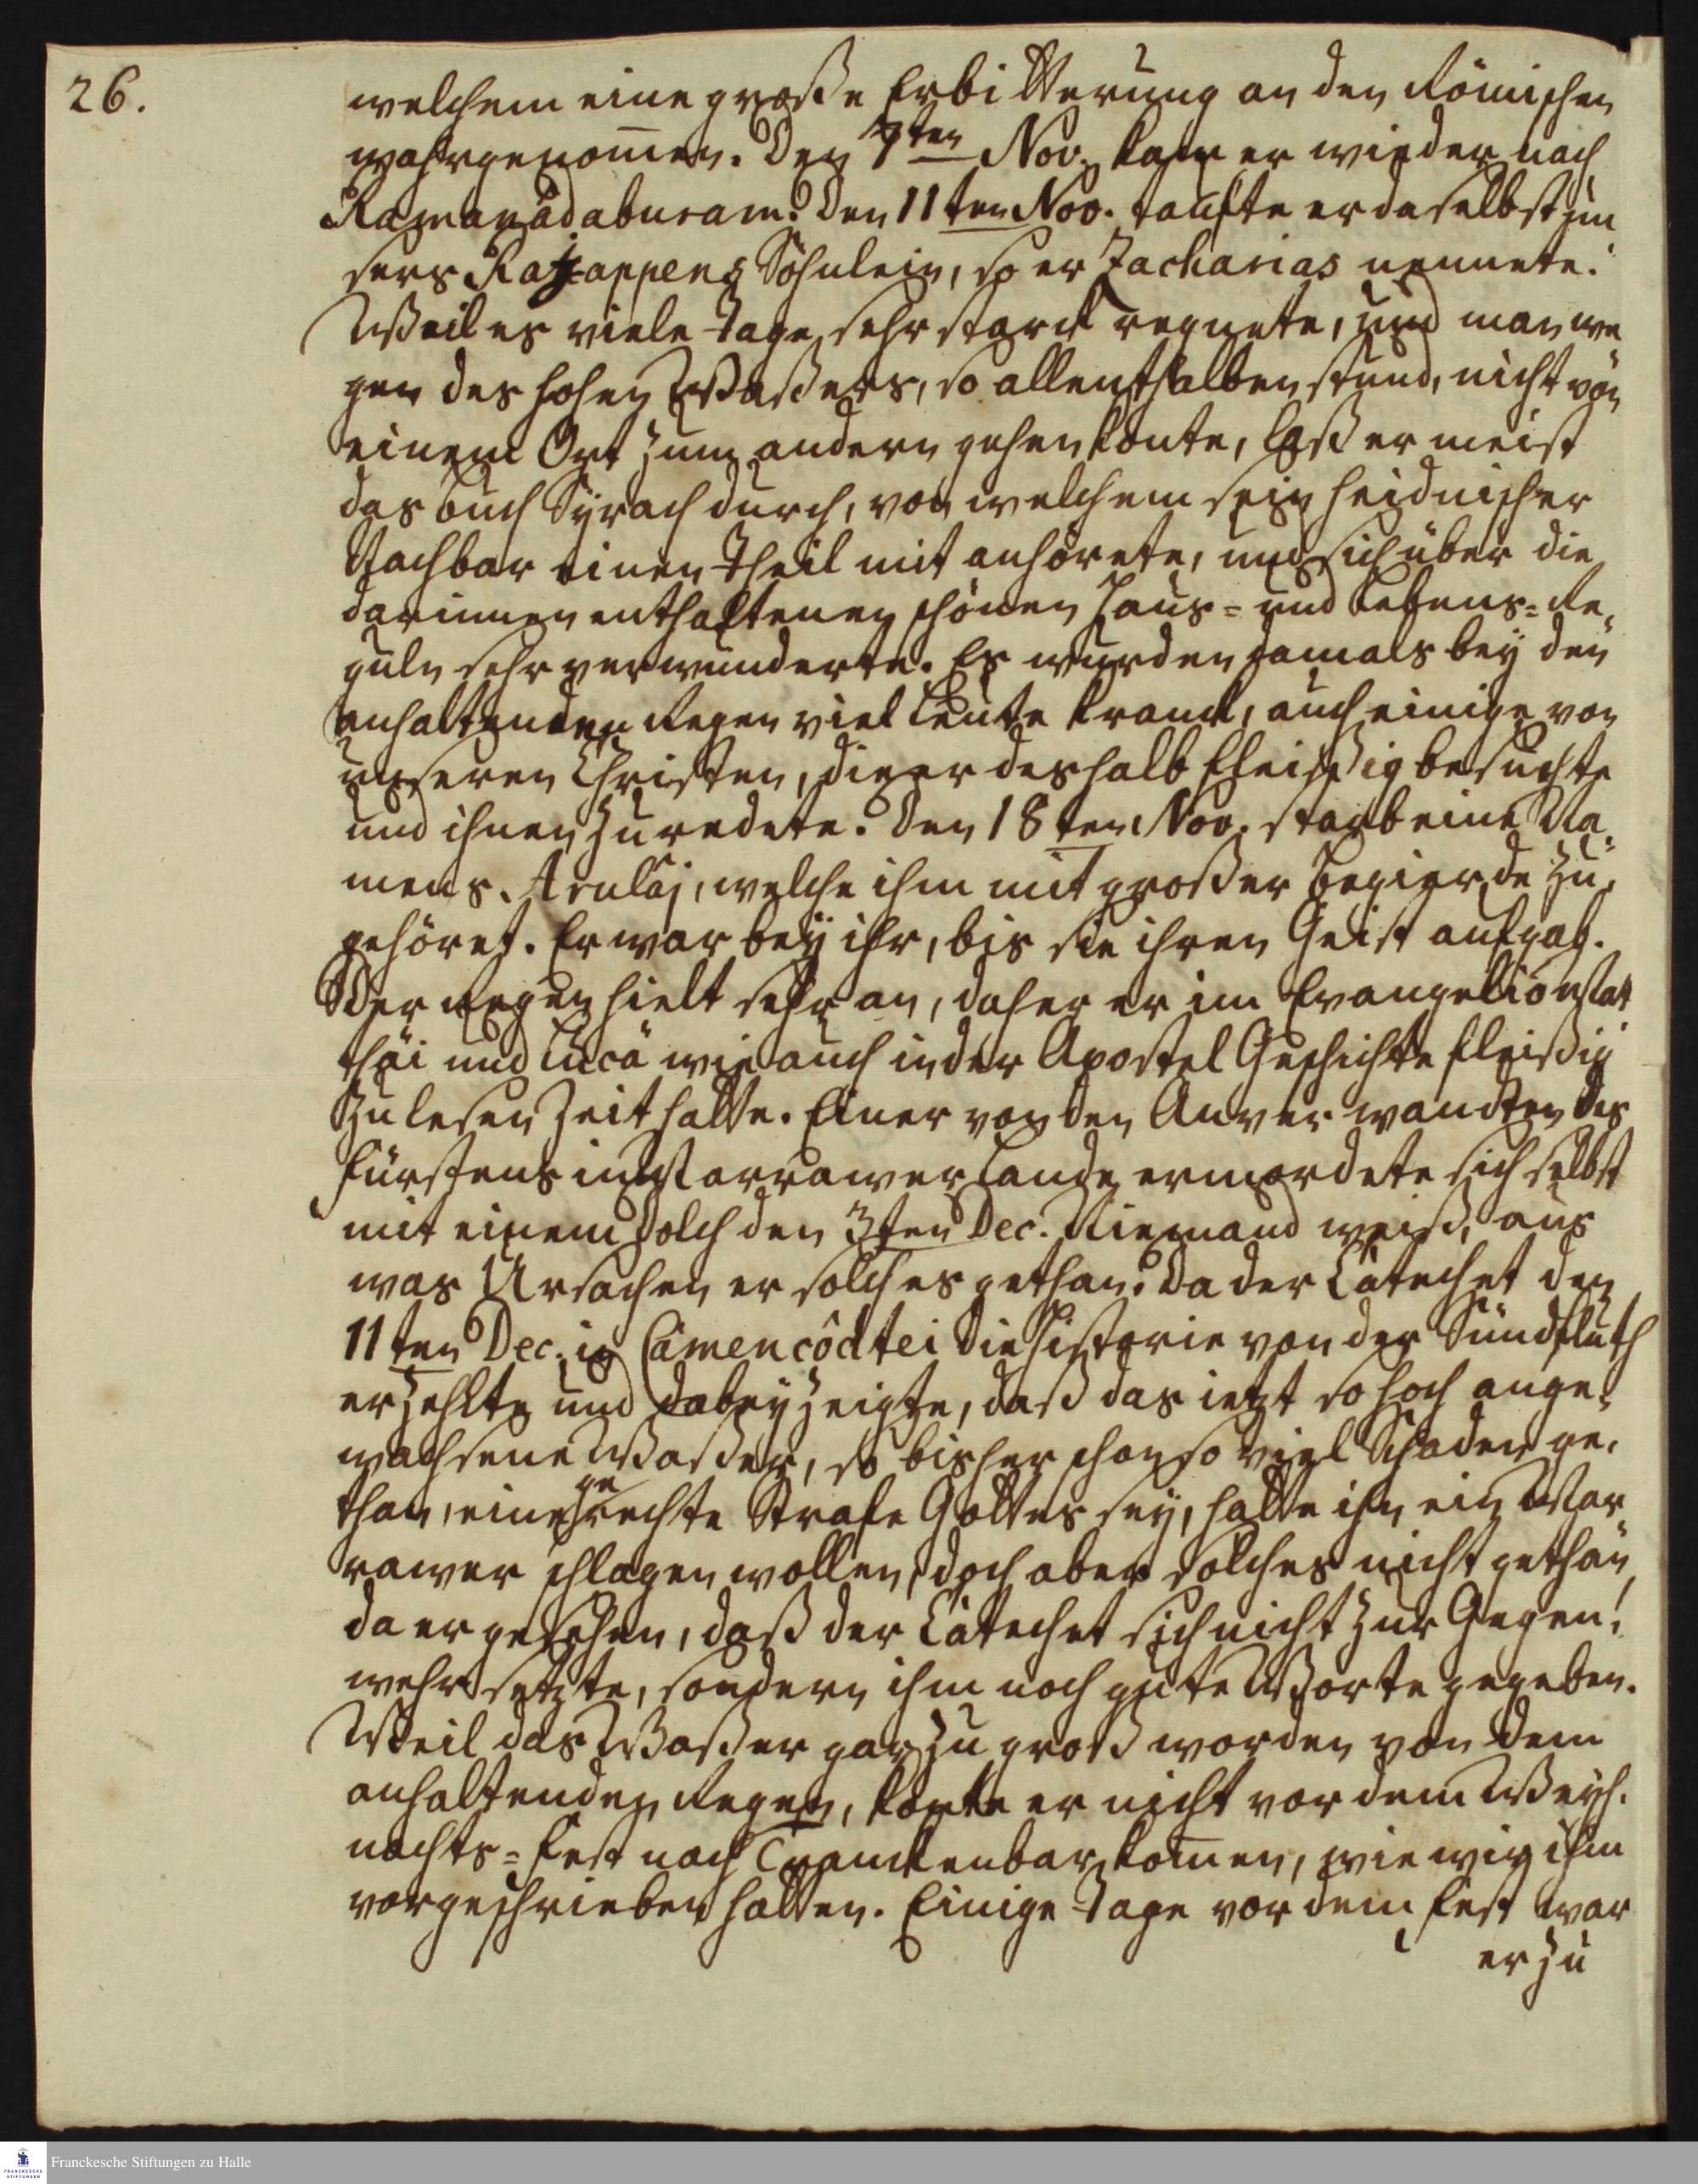 26.
welchem eine große Erbitterung an den Römischen
wahrgenom̅en. Den 7ten Nov. kam er wieder nach
Ramanádaburam. Den 11ten Nov. taufte er daselbst un
sers Rajappens Söhnlein, so er Zacharias nennete.
Weil es viele Tage sehr starck regnete, und man we
gen des hohen Waßers, so allenthalben stund, nicht von
einem Ort zum andern gehen konte, laß er meist
das Buch Syrach durch, von welchem sein heidnischer
Nachbar einen Theil mit anhörete, und sich über die
darinnen enthaltenen schönen Haus- und Lebens-Re¬
guln sehr verwunderte. Es wurden damals bey den
anhaltenden Regen viel Leute kranck, auch einige von
unseren Christen, die er deshalb fleißig besuchte
und ihnen zuredete. Den 18ten Nov. starb eine Na¬
mens Arulâj, welche ihm mit großer Begierde zu¬
gehöret. Er war bey ihr, bis sie ihren Geist aufgab.
Der Regen hielt sehr an, daher er im Evangelio Mat
thäi und Lucä wie auch in der Apostel Geschichte fleißig
zu lesen Zeit hatte. Einer von den Anverwandten des
Fürstens im Marrawer Lande ermordete sich selbst
mit einem Dolch den 3ten Dec. Niemand weiß, aus
was Ursachen er solches gethan. Da der Catechet den
11ten Dec. in Câmencôdtei die Historie von der Sündfluth
erzehlte und dabey zeigte, daß das ietzt so hoch ange¬
wachsene Waßer, so bisher schon so viel Schaden ge¬
than, eine gerechte Strafe Gottes sey, hatte ihn ein Mar
rawer schlagen wollen, doch aber solches nicht gethan,
da er gesehen, daß der Catechet sich nicht zur Gegen¬
wehr setzte, sondern ihm noch gute Worte gegeben.
Weil das Waßer gar zu groß worden von dem
anhaltenden Regen, konte er nicht vor dem Weyh¬
nachts-Fest nach Tranckenbar kom̅en, wie wir ihm
vorgeschrieben hatten. Einige Tage vor dem Fest war
er zu
Franckesche Stiftungen zu Halle